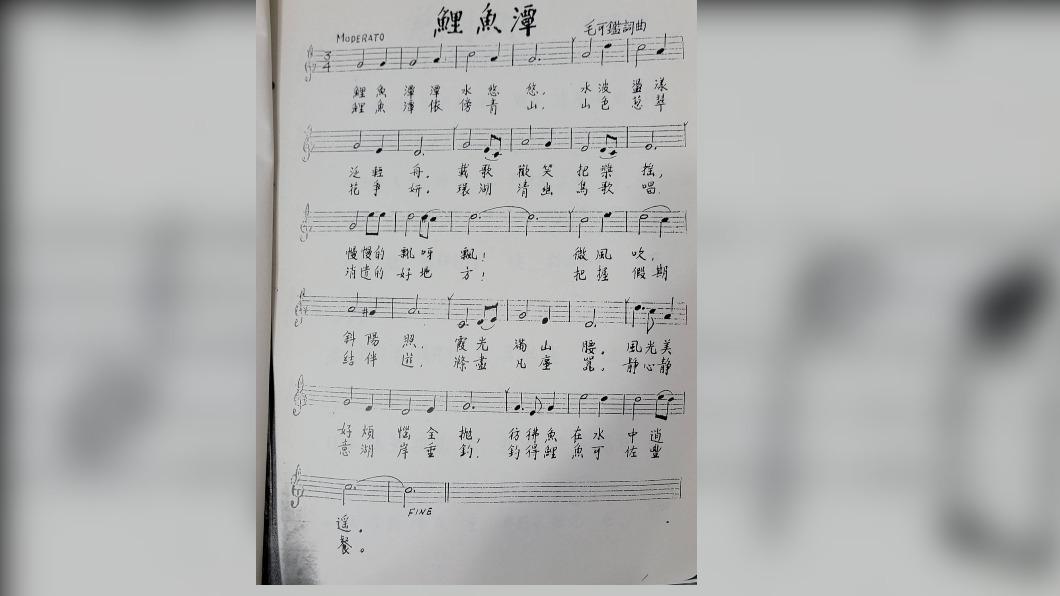 鯉魚潭
MODERATO
毛可鑑詞曲
3
4
鯉魚潭潭水悠悠,水波盪漾
鯉魚潭依傍青山,山色葱翠
泛輕舟。載歌歡笑把槳搖,
花爭妍。環湖清幽鳥歌唱.
慢慢的飄呀飄!微風吹,
消遣的好地方!把握假期
斜陽照.霞光滿山腰。風光美
結伴遊.滌盡凡塵囂。靜心靜
好煩惱全拋,彷彿魚在水中逍
意湖岸垂釣.釣得鯉魚可佐豐
FINE
遥。
餐。